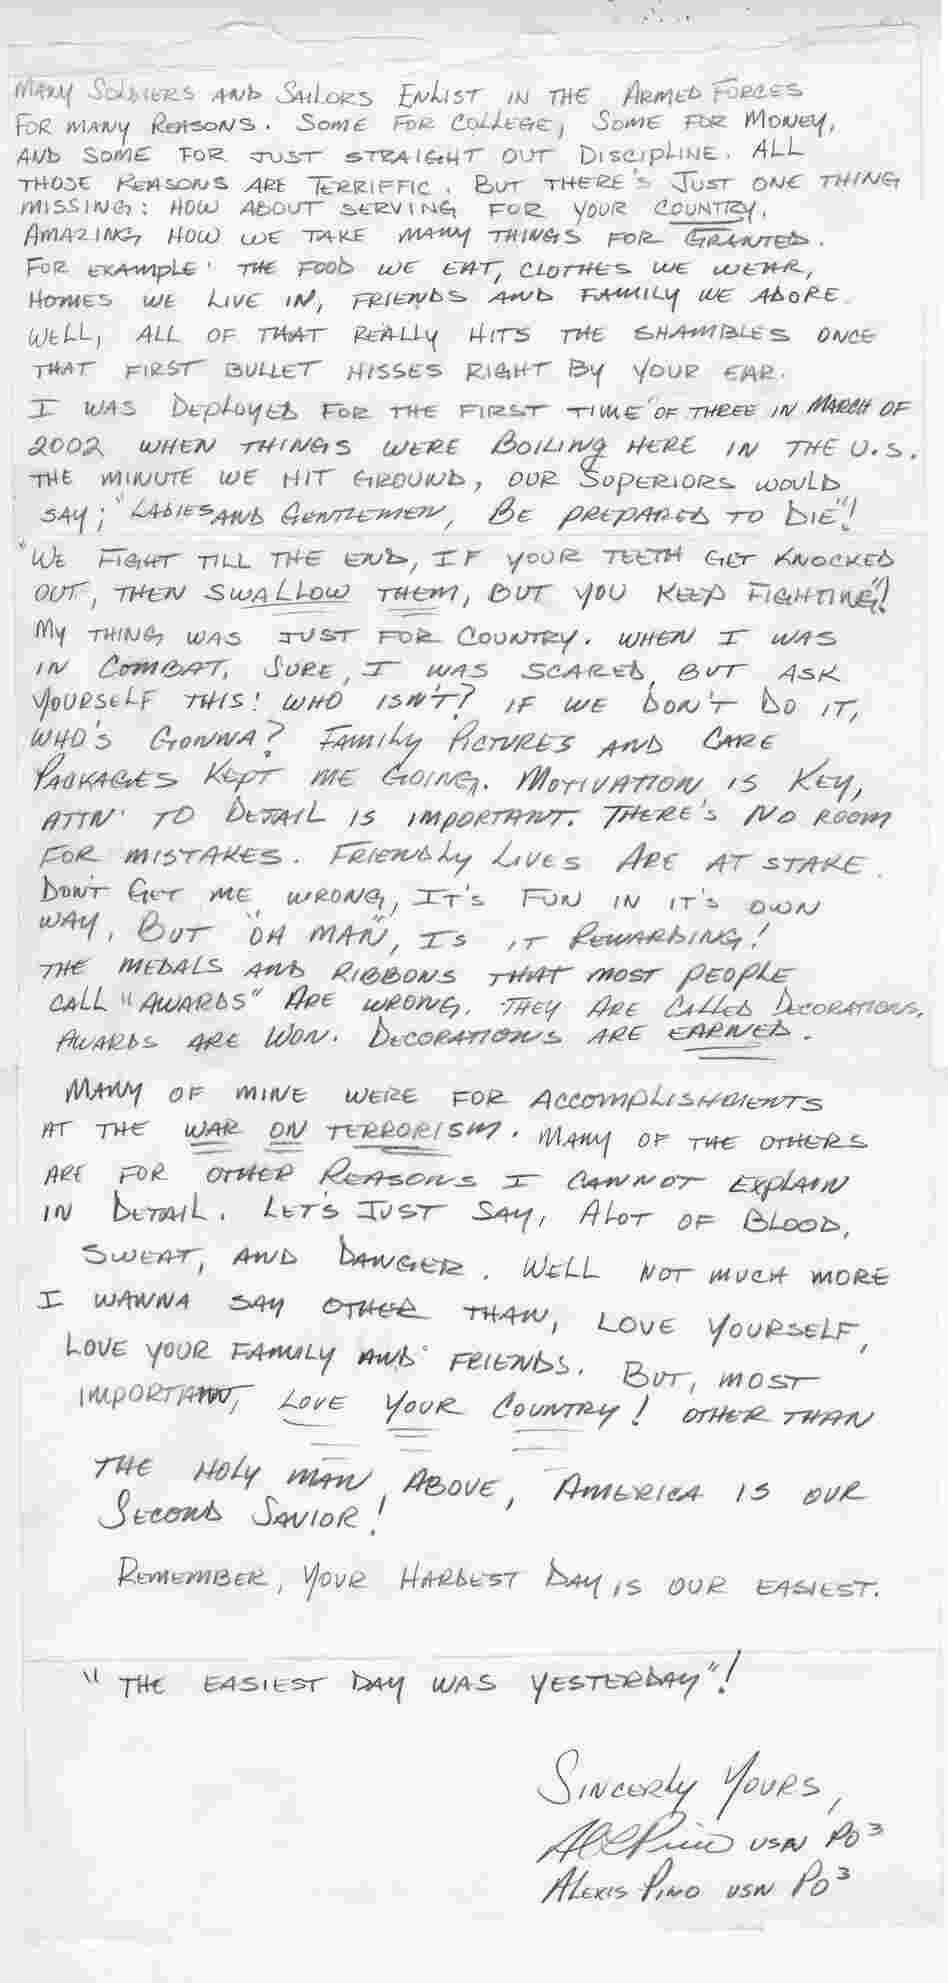 MANY SOLDIERS AND SAILORS ENLIST IN THE ARMED FORCES
FOR MANY REASONS. SOME FOR COLLEGE, SOME FOR MONEY,
AND SOME FOR JUST STRAIGHT OUT DISCIPLINE. ALL
THOSE REASONS ARE TERRIFFIC. BUT THERE'S JUST ONE THING
MISSING: HOW ABOUT SERVING FOR YOUR COUNTRY.
AMAZING HOW WE TAKE MANY THINGS FOR GRANTED.
FOR EXAMPLE: THE FOOD WE EAT, CLOTHES WE WEAR,
HOMES WE LIVE IN, FRIENDS AND FAMILY WE ADORE.
WELL, ALL OF THAT REALLY HITS THE SHAMBLES ONCE
THAT FIRST BULLET HISSES RIGHT BY YOUR EAR.
I WAS DEPLOYED FOR THE FIRST TIME OF THREE IN MARCH OF
2002 WHEN THINGS WERE BOILING HERE IN THE U.S.
THE MINUTE WE HIT GROUND, OUR SUPERIORS WOULD
SAY; "LADIES AND GENTLEMEN, BE PREPARED TO DIE"!
"WE FIGHT TILL THE END, IF YOUR TEETH GET KNOCKED
OUT, THEN SWALLOW THEM, BUT YOU KEEP FIGHTING"!
MY THING WAS JUST FOR COUNTRY. WHEN I WAS
IN COMBAT, SURE, I WAS SCARED, BUT ASK
YOURSELF THIS: WHO ISN'T? IF WE DON'T DO IT,
WHO'S GONNA? FAMILY PICTURES AND CARE
PACKAGES KEPT ME GOING. MOTIVATION IS KEY,
ATTN' TO DETAIL IS IMPORTANT. THERE'S NO ROOM
FOR MISTAKES. FRIENDLY LIVES ARE AT STAKE.
DON'T GET ME WRONG, IT'S FUN IN IT'S OWN
WAY, BUT "OH MAN", IS IT REWARDING!
THE MEDALS AND RIBBONS THAT MOST PEOPLE
CALL "AWARDS" ARE WRONG. THEY ARE CALLED DECORATIONS.
AWARDS ARE WON. DECORATIONS ARE EARNED.
MANY OF MINE WERE FOR ACCOMPLISHMENTS
AT THE WAR ON TERRORISM. MANY OF THE OTHERS
ARE FOR OTHER REASONS I CANNOT EXPLAIN
IN DETAIL. LET'S JUST SAY, ALOT OF BLOOD,
SWEAT, AND DANGER. WELL NOT MUCH MORE
I WANNA SAY OTHER THAN, LOVE YOURSELF,
LOVE YOUR FAMILY AND FRIENDS. BUT, MOST
IMPORTANT, LOVE YOUR COUNTRY! OTHER THAN
THE HOLY MAN ABOVE, AMERICA IS OUR
SECOND SAVIOR!
REMEMBER, YOUR HARDEST DAY IS OUR EASIEST.
"THE EASIEST DAY WAS YESTERDAY"!
SINCERLY YOURS,
USN PO3
ALEXIS PINO USN PO3